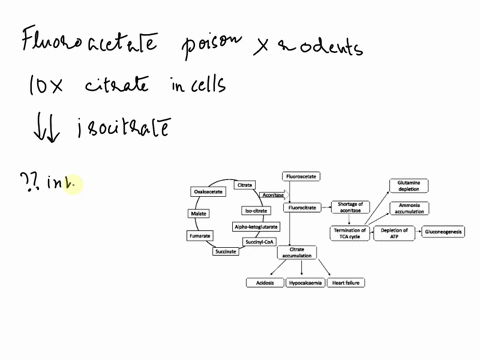 Fluoroacetate poison x rodents
10x citrate in cells
↓↓ isocitrate
?? inh
Fluoroacetate
Glutamine depletion
Citrate
Oxaloacetate
Aconitase
Fluorocitrate
Shortage of aconitase
Ammonia accumulation
Malate
Iso-citrate
Alpha-ketoglutarate
Termination of TCA cycle
Depletion of ATP
Gluconeogenesis
Fumarate
Succinyl-CoA
Succinate
Citrate accumulation
Acidosis
Hypocalcaemia
Heart failure